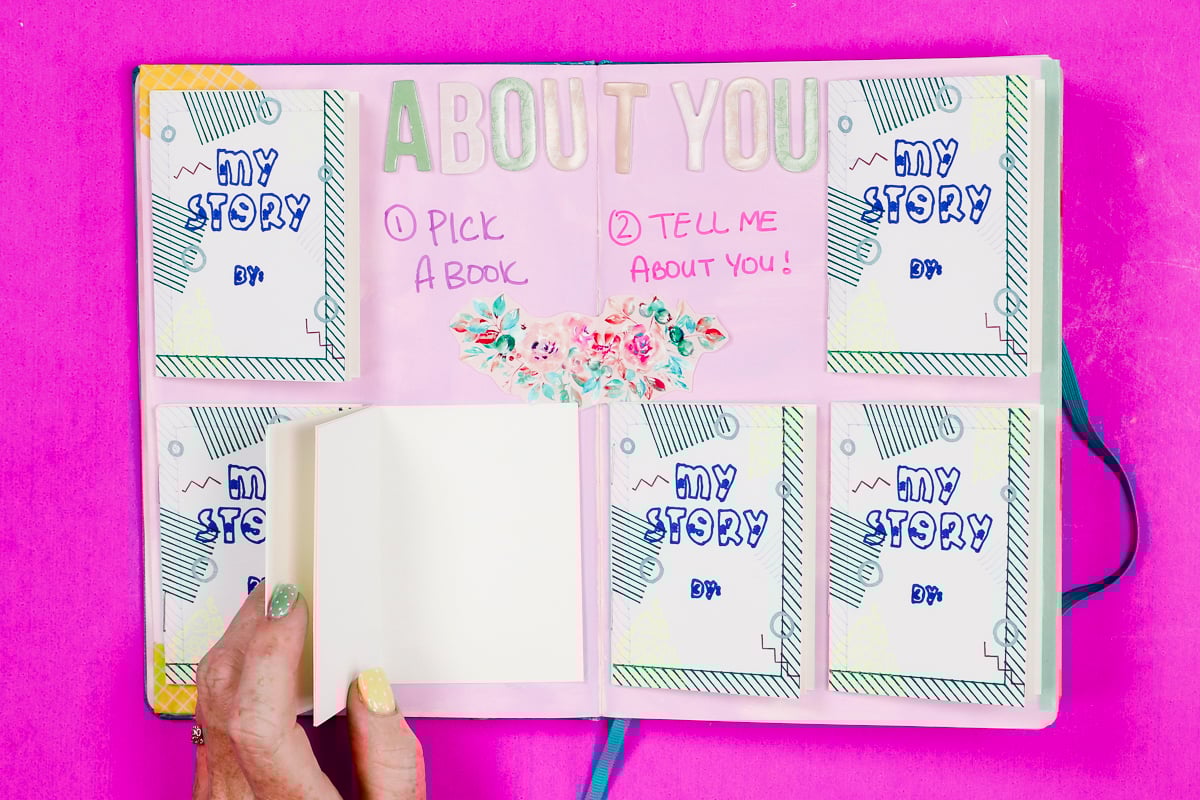 ABOUT YOU
① PICK
A BOOK
② TELL ME
ABOUT YOU!
MY
STORY
BY:
MY
STORY
BY:
M
STO
MY
STORY
BY:
MY
STORY
BY: